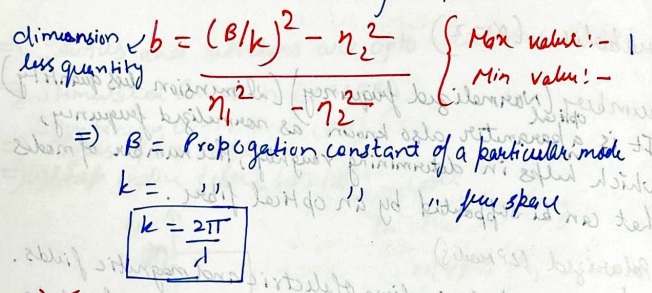 dimension
less quantity
b = (β/k)² - η₂² / η₁² - η₂²
Max value :- 1
Min value :-
=) β = Propogation constant of a particular mode
k = ,, ,, ,, free space
k = 2π/λ